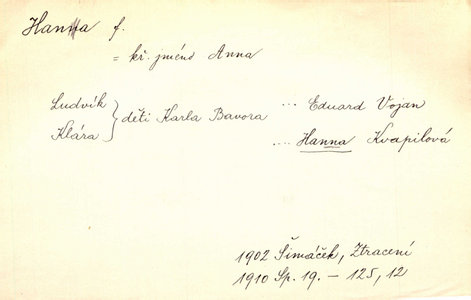 Hanna f.
= kř. jméno Anna
Ludvík
Klára } děti Karla Bavora ... Eduard Vojan
.... Hanna Kvapilová
1902 Šimáček, Ztracení
1910 Sp. 19. – 125, 12